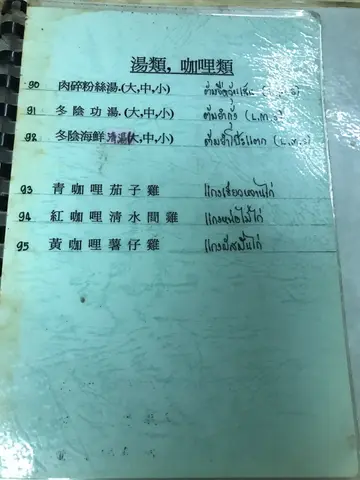 湯類, 咖哩類
90 肉碎粉絲湯.(大,中,小)
91 冬陰功湯.(大,中,小) ต้มยำกุ้ง (L.m.s)
92 冬陰海鮮清湯(大,中,小) ต้มยำโป๊ะแตก (L.m.s)
93 青咖哩茄子雞 แกงเขียวหวานไก่
94 紅咖哩清水間雞 แกงหน่อไม้ไก่
95 黃咖哩薯仔雞 แกงมัสมั่นไก่